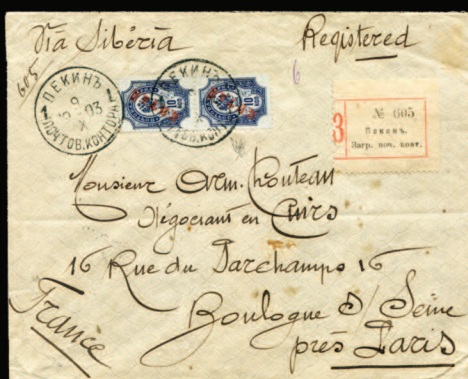 Via Sibéria
Registered
605
6
ПЕКИНЪ
9
X 03
ПОЧТОВ. КОНТОРА
10 КОП 10
10 КОП 10
ПЕКИНЪ
ПОЧТОВ. КОНТ
З
№ 605
Пекинъ.
Загр. поч. конт.
Monsieur Arm. Chouteau
Négociant en Cuirs
16 Rue du Parchamps 16
Boulogne s/ Seine
près Paris
France